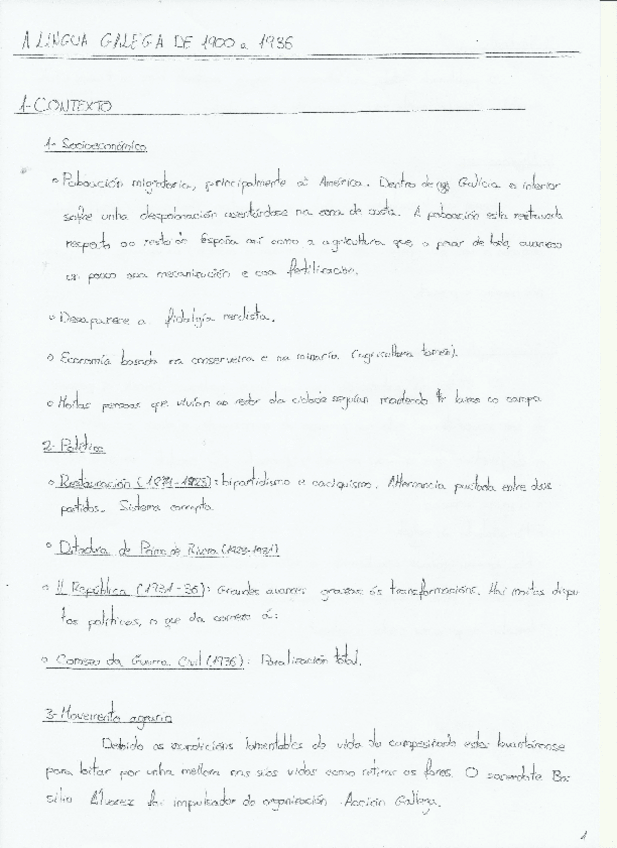 A LINGUA GALEGA DE 1900 a 1936
1-CONTEXTO
1- Socioeconómico
Poboación migratoria, principalmente a América. Dentro de Galicia o interior
sofre unha despoboación asentándose na zona de costa. A poboación está
respecto ao resto de España así como a agricultura que, a pesar de todo, avanzou
un pouco coa mecanización e coa fertilización.
Desaparece a fidalgía rendista.
Economía basada na conserveira e na minaría (agricultura tamén).
Moitas persoas que vivían ao redor da cidade seguían mantendo no campo
2- Político
Restauración (1874-1923): bipartidismo e caciquismo. Alternancia pautada entre dous
partidos. Sistema corrupto
Ditadura de Primo de Rivera (1923-1931)
II República (1931-36): Grandes avances grazas ás transformacións. Hai moitas dispu
tas políticas, o que da comezo á:
Comezo da Guerra Civil (1936): Paralización total.
3-Movemento agrario
Debido as condicións lamentables de vida do campesiñado estes levantáronse
para loitar por unha mellora nas súas vidas como retirar os foros. O sacerdote Ba
silio Álvarez foi impulsador da organización Acción Gallega.
1